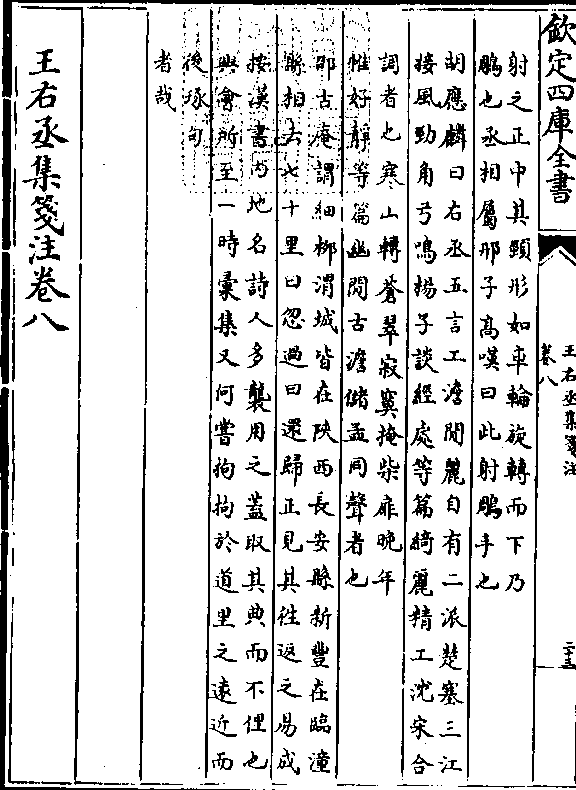 欽定四庫全書
王右丞集箋注
卷八
二十三
射之正中其頸形如車輪旋轉而下乃
鵰也丞相屬邢子高嘆曰此射鵰手也
胡應麟曰右丞五言工澹閒麗自有二派楚塞三江
接風勁角弓鳴揚子談經處等篇綺麗精工沈宋合
調者也寒山轉蒼翠寂寞掩柴扉晚年
惟好靜等篇幽閒古澹儲孟同聲者也
邵古庵謂細柳渭城皆在陝西長安縣新豐在臨潼
縣相去七十里曰忽過曰還歸正見其往返之易成
按漢書内地名詩人多襲用之蓋取其典而不俚也
興會所至一時彙集又何嘗拘拘於道里之遠近而
後琢句
者哉
王右丞集箋注卷八